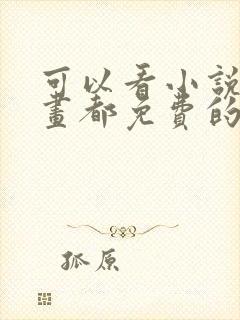 可以看小說
畫都免費的
孤原